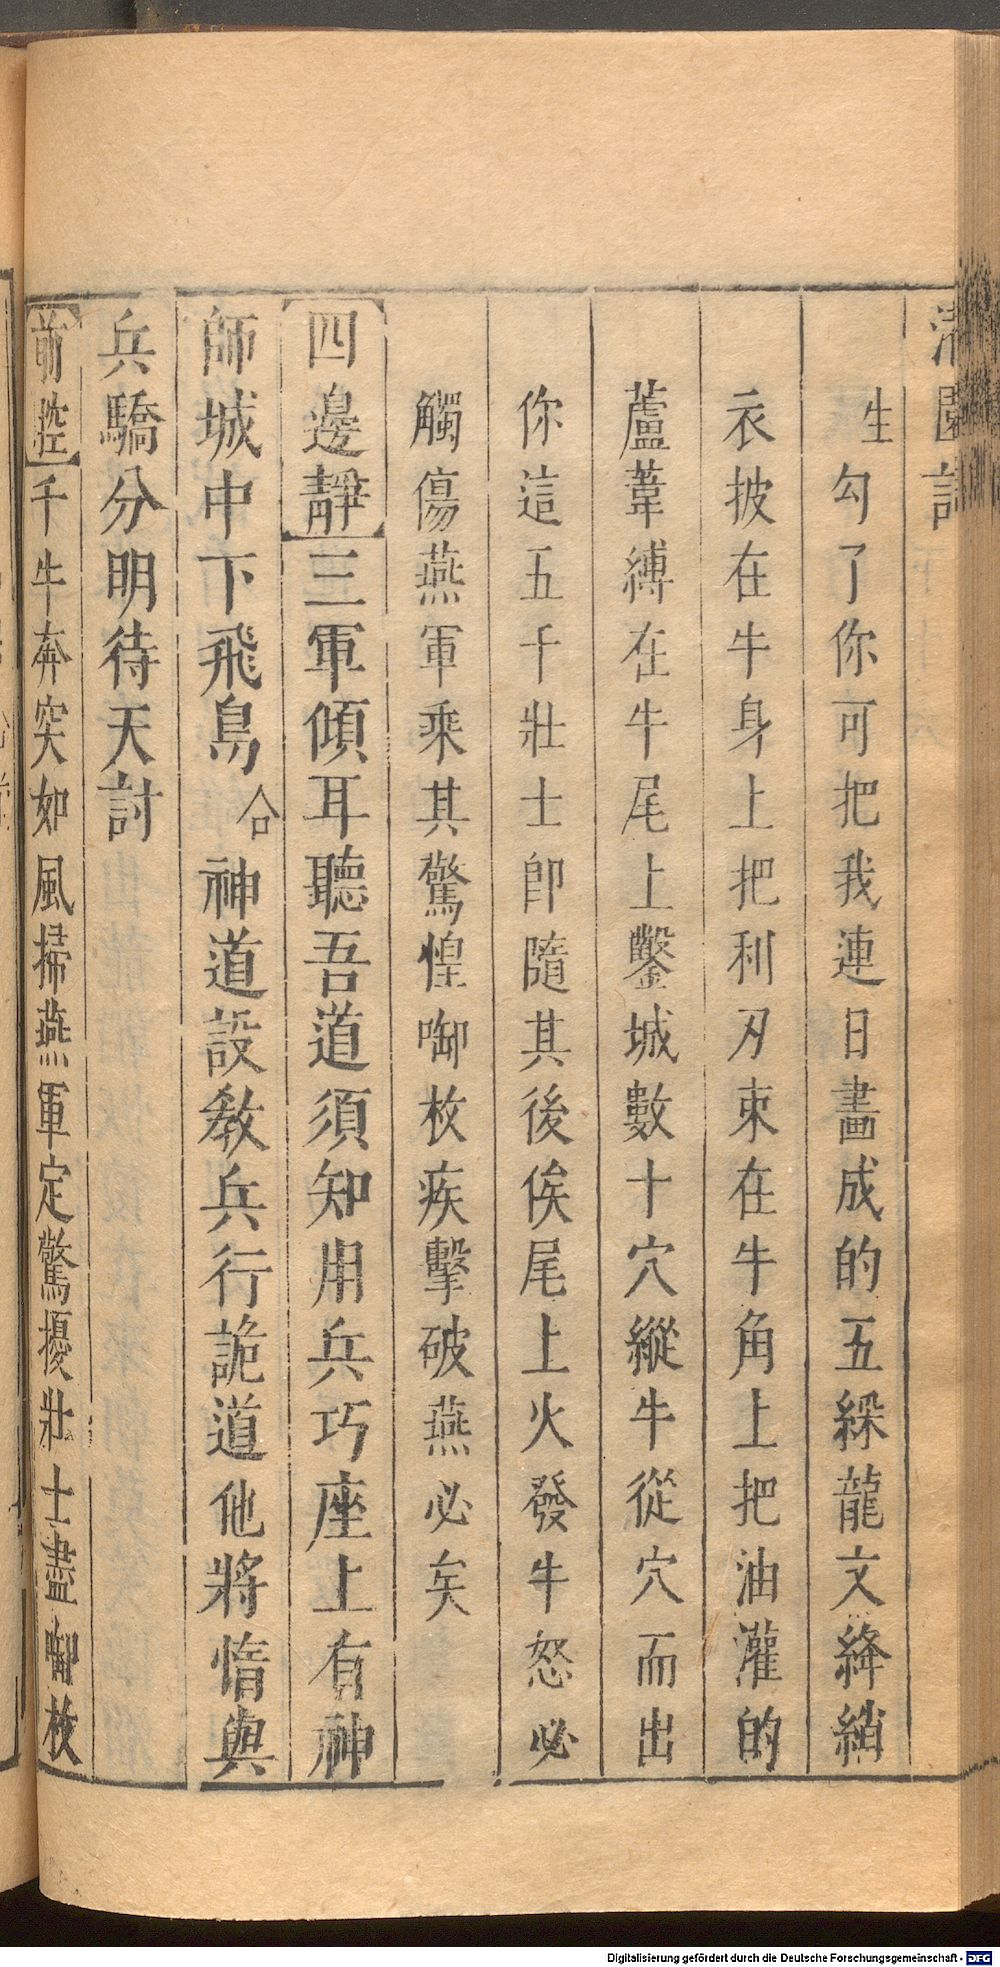 生勾了你可把我連日畵成的五綵龍文絳綃
衣披在牛身上把利刃束在牛角上把油灌的
蘆葦縛在牛尾上鑿城數十穴縱牛從穴而出
你這五千壯士卽隨其後俟尾上火發牛怒必
觸傷燕軍乘其驚惶啣枚疾擊破燕必矣
四邊靜三軍傾耳聽吾道須知用兵巧座上有神
師城中下飛鳥合神道設教兵行詭道他將惰與
兵驕分明待天討
前腔千牛奔突如風掃燕軍定驚擾壯士盡啣枚
Digitalisierung gefördert durch die Deutsche Forschungsgemeinschaft - DFG